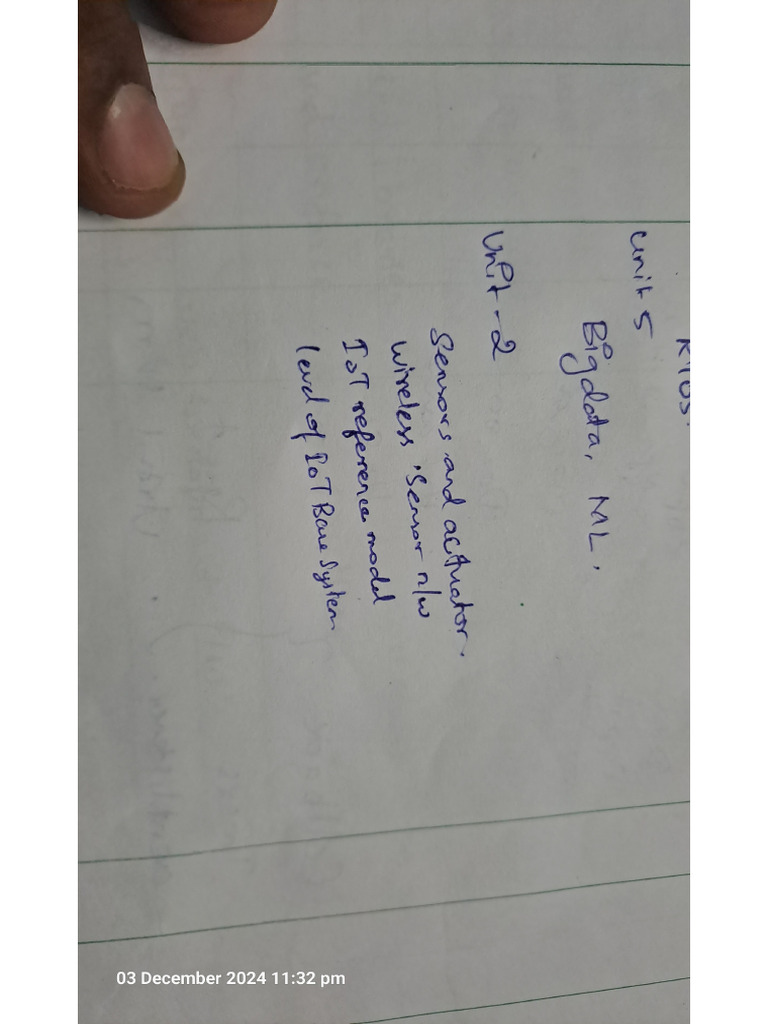 unit 5
Bigdata, ML.
Unit-2
Sensors and actuator.
wireless sensor n/w
IoT reference model
level of IoT Base System
03 December 2024 11:32 pm